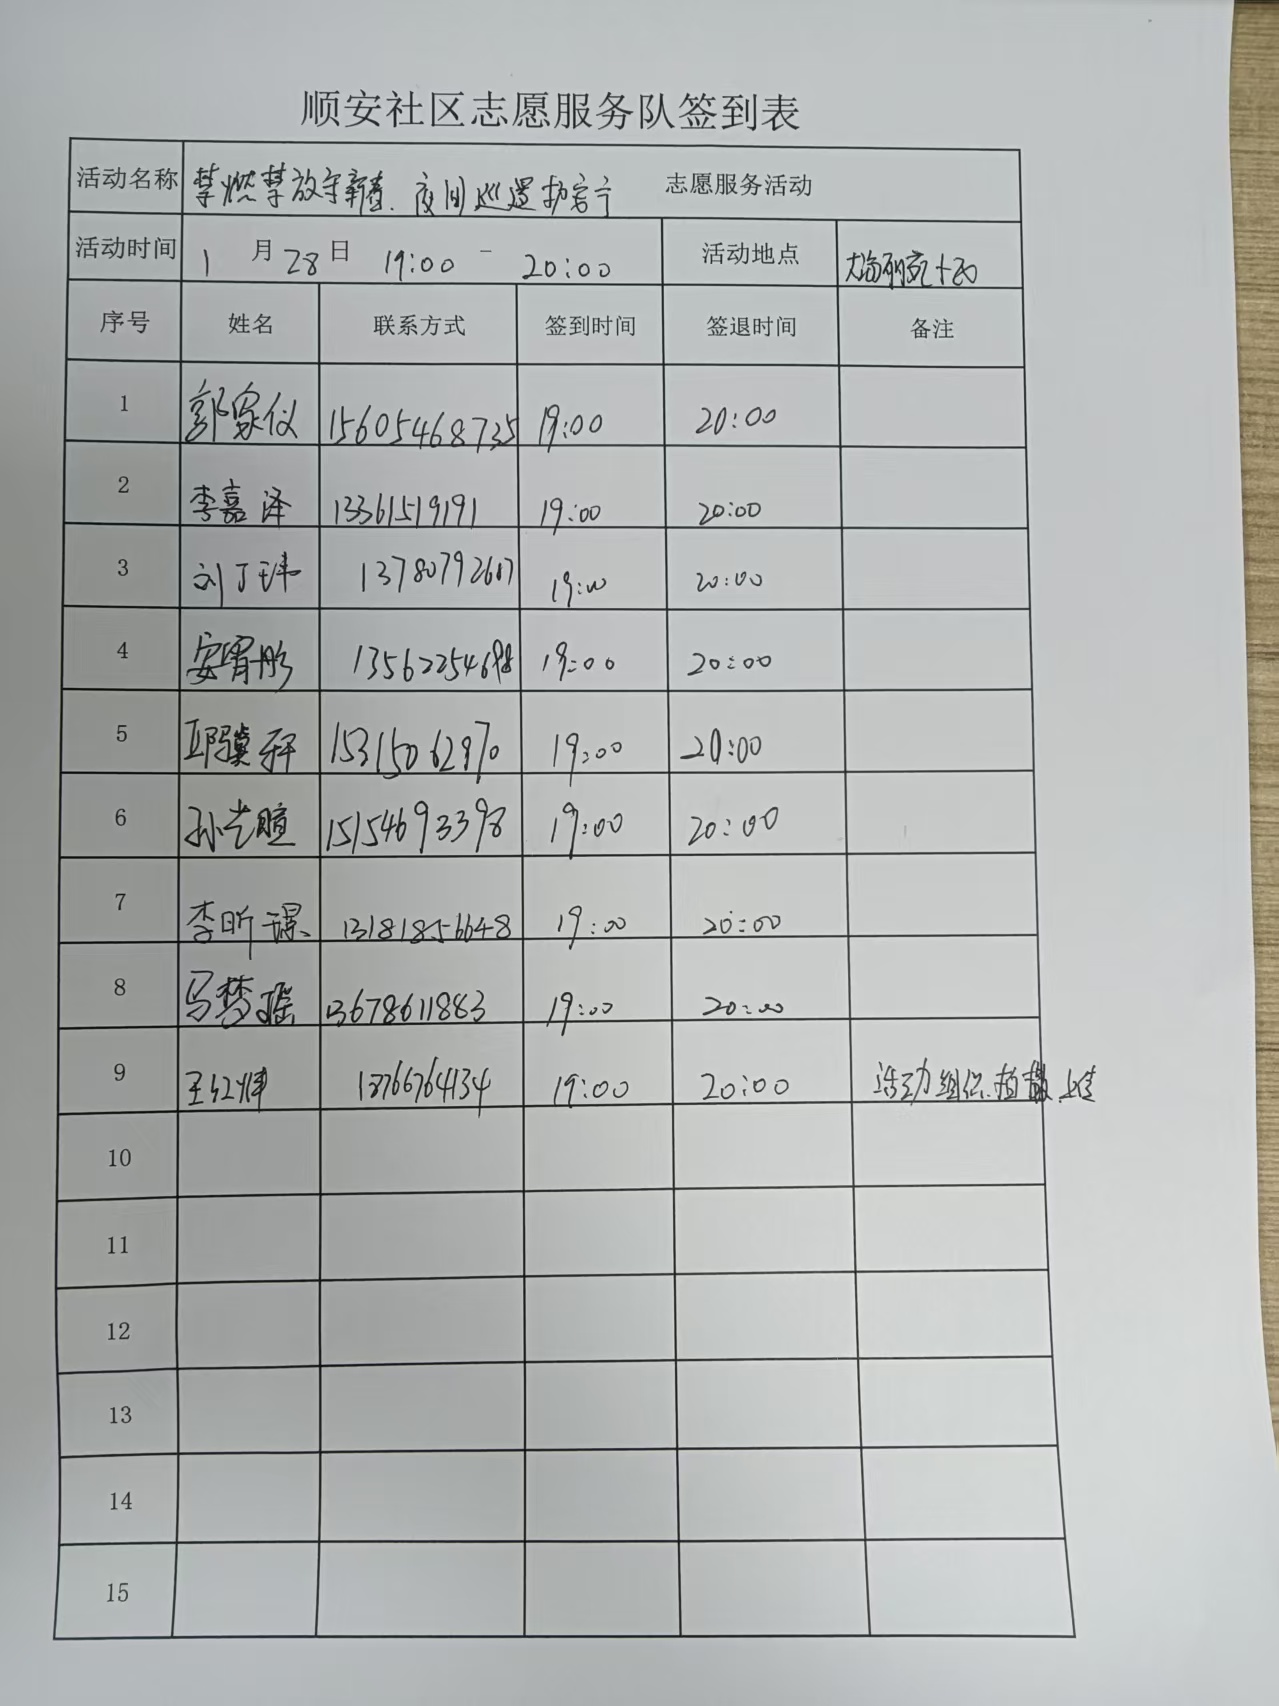 顺安社区志愿服务队签到表
活动名称 禁燃禁放守新春、夜间巡逻护安宁 志愿服务活动
活动时间 1月28日 19:00-20:00 活动地点
序号 姓名 联系方式 签到时间 签退时间 备注
1 郭家仪 15605468735 19:00 20:00
2 李嘉泽 13361519191 19:00 20:00
3 刘丁玮 19:00 20:00
4 安胥彤 19:00 20:00
5 邱骥 15315062970 19:00 20:00
6 孙艺暄 15154693398 19:00 20:00
7 李昕璟 13181856648 19:00 20:00
8 马梦瑶 13678611883 19:00 20:00
9 王红伟 19:00 20:00 活动组织、拍摄、上传
10
11
12
13
14
15